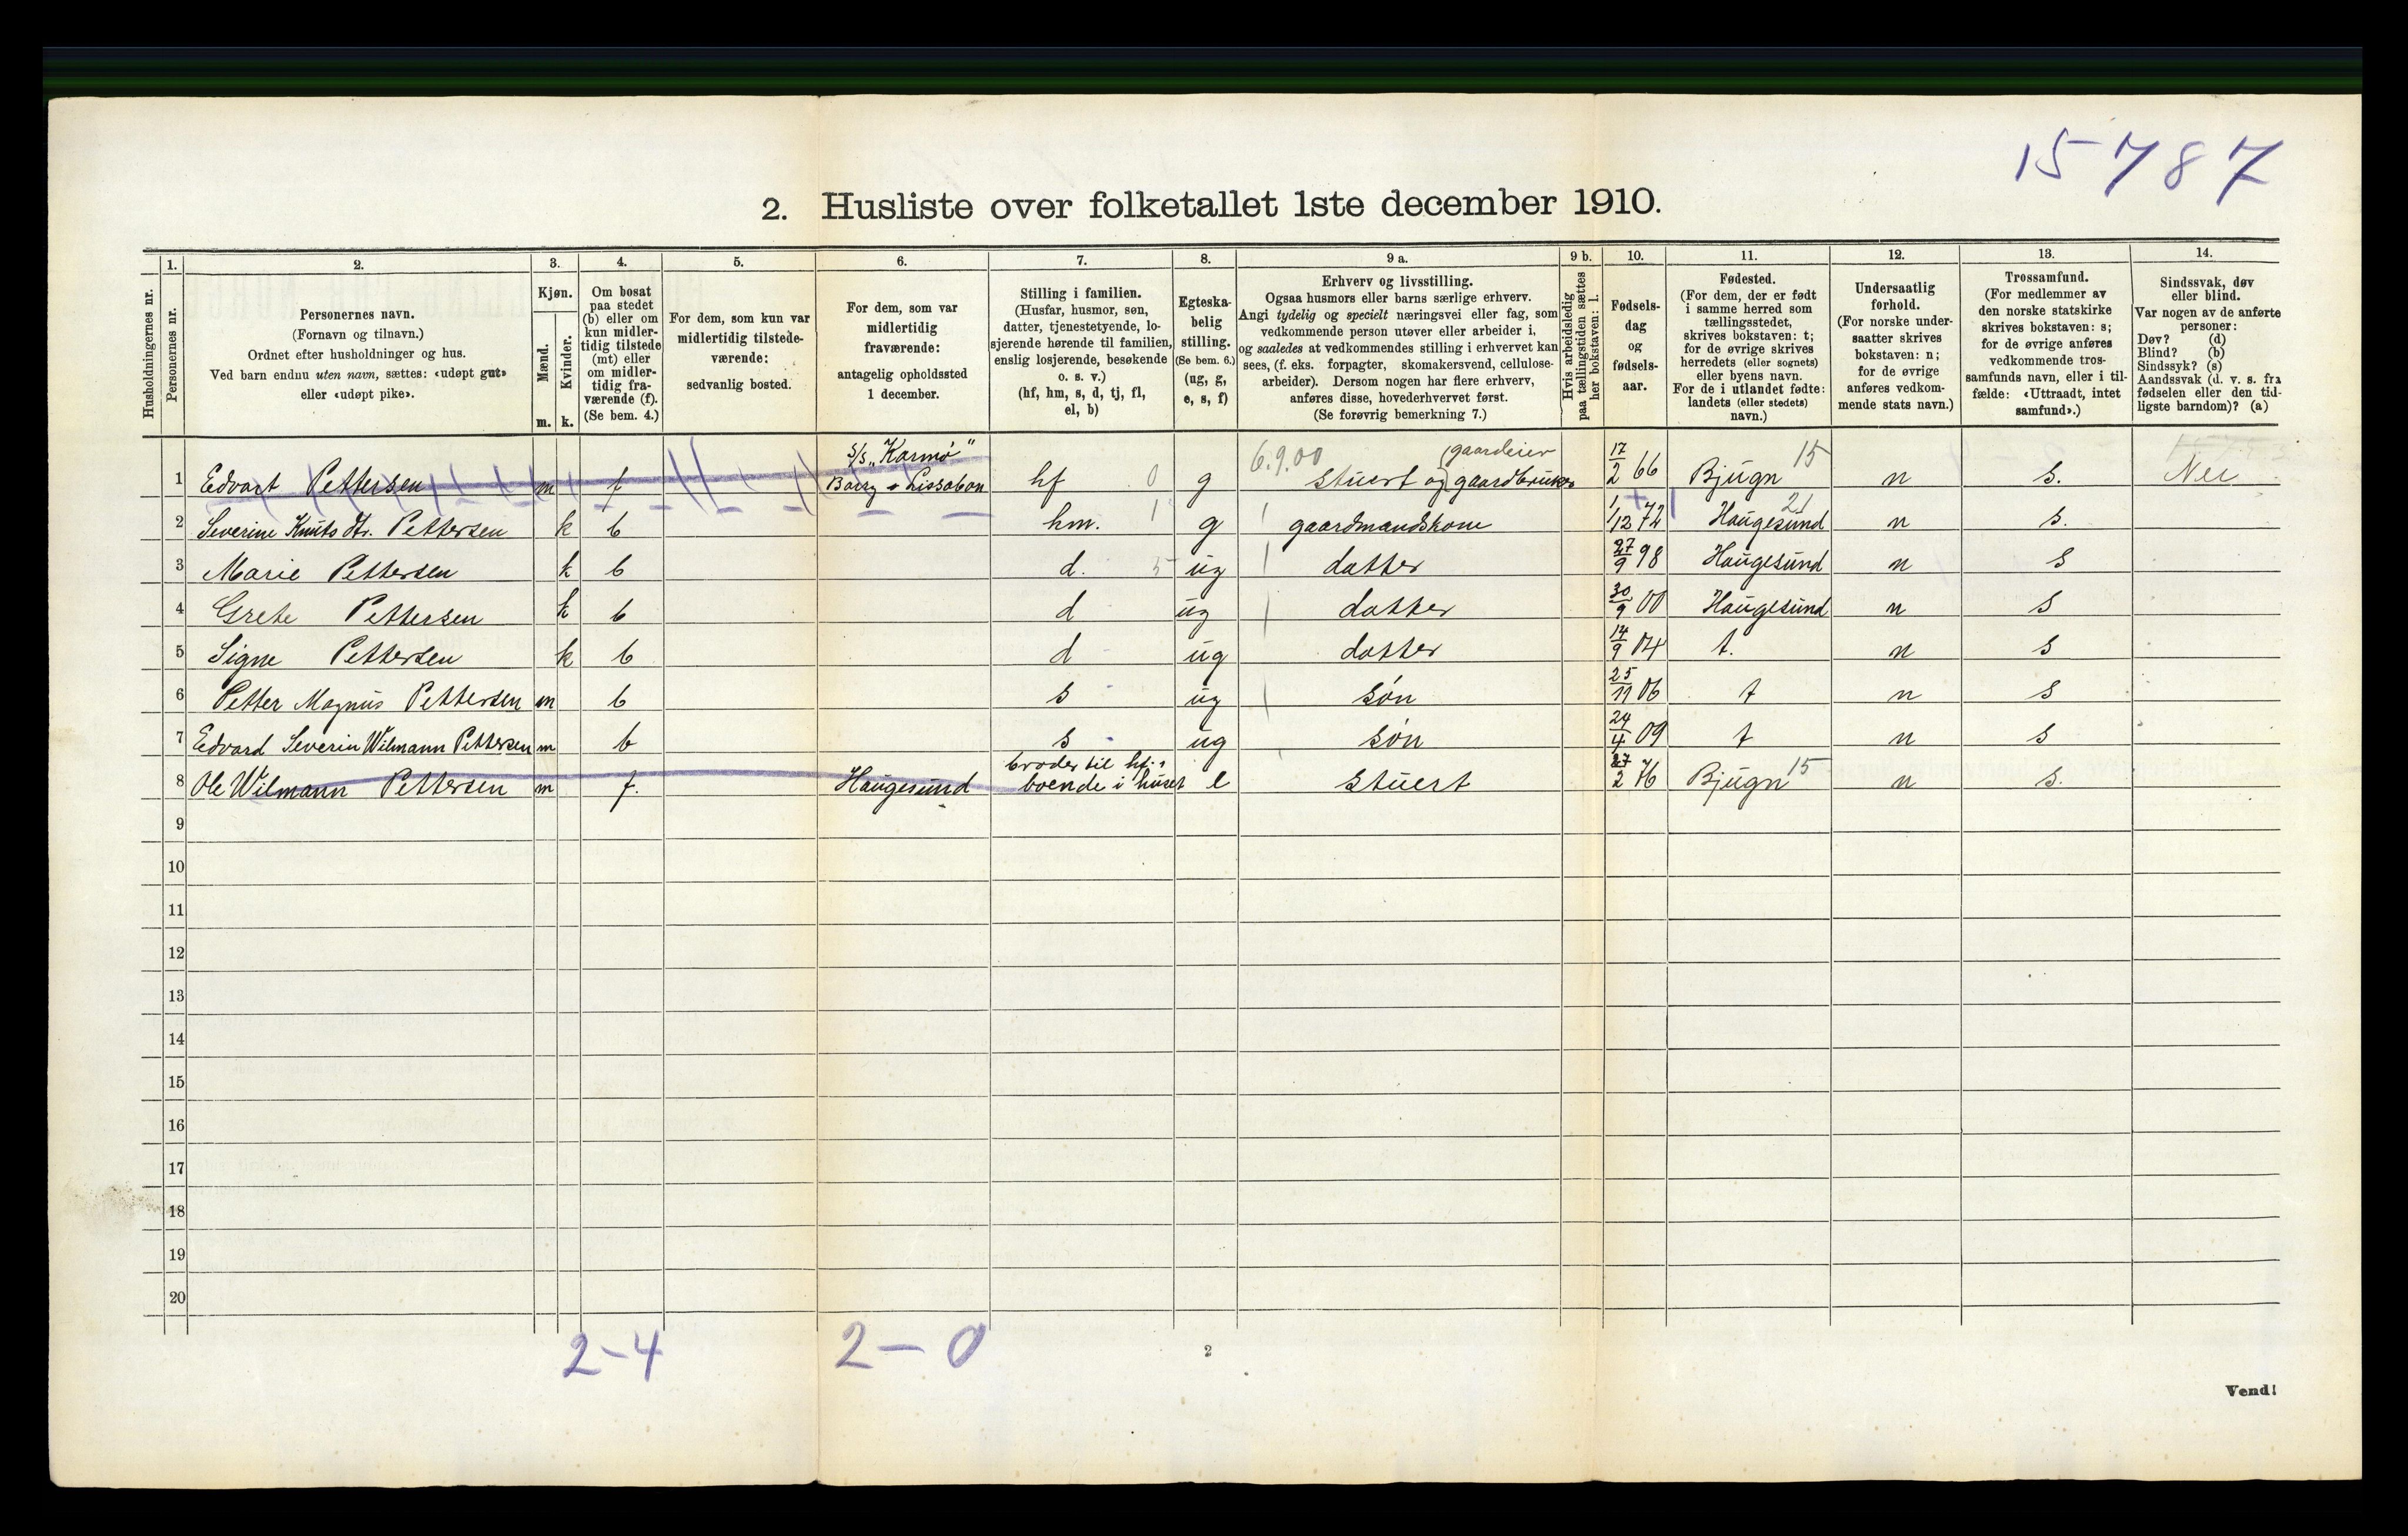 15787
2. Husliste over folketallet 1ste december 1910.
Husholdningernes nr.
1.
Personernes nr.
2.
Personernes navn.
(Fornavn og tilnavn.)
Ordnet efter husholdninger og hus.
Ved barn endnu uten navn, sættes: «udøpt gut»
eller «udøpt pike».
3.
Kjøn.
Mænd.
m.
Kvinder.
k.
4.
Om bosat
paa stedet
(b) eller om
kun midler-
tidig tilstede
(mt) eller
om midler-
tidig fra-
værende (f).
(Se bem. 4.)
5.
For dem, som kun var
midlertidig tilstede-
værende:
sedvanlig bosted.
6.
For dem, som var
midlertidig
fraværende:
antagelig opholdssted
1 december.
7.
Stilling i familien.
(Husfar, husmor, søn,
datter, tjenestetyende, lo-
sjerende hørende til familien,
enslig losjerende, besøkende
o. s. v.)
(hf, hm, s, d, tj, fl,
el, b)
8.
Egteska-
belig
stilling.
(Se bem. 6.)
(ug, g,
e, s, f)
9 a.
Erhverv og livsstilling.
Ogsaa husmors eller barns særlige erhverv.
Angi tydelig og specielt næringsvei eller fag, som
vedkommende person utøver eller arbeider i,
og saaledes at vedkommendes stilling i erhvervet kan
sees, (f. eks. forpagter, skomakersvend, cellulose-
arbeider). Dersom nogen har flere erhverv,
anføres disse, hovederhvervet først.
(Se forøvrig bemerkning 7.)
9 b.
Hvis arbeidsledig
paa tællingstiden sættes
her bokstaven: l.
10.
Fødsels-
dag
og
fødsels-
aar.
11.
Fødested.
(For dem, der er født
i samme herred som
tællingsstedet,
skrives bokstaven: t;
for de øvrige skrives
herredets (eller sognets)
eller byens navn.
For de i utlandet fødte:
landets (eller stedets)
navn.)
12.
Undersaatlig
forhold.
(For norske under-
saatter skrives
bokstaven: n;
for de øvrige
anføres vedkom-
mende stats navn.)
13.
Trossamfund.
(For medlemmer av
den norske statskirke
skrives bokstaven: s;
for de øvrige anføres
vedkommende tros-
samfunds navn, eller i til-
fælde: «Uttraadt, intet
samfund».)
14.
Sindssvak, døv
eller blind.
Var nogen av de anførte
personer:
Døv? (d)
Blind? (b)
Sindssyk? (s)
Aandssvak (d. v. s. fra
fødselen eller den tid-
ligste barndom)? (a)
S/S „Karmø" 6.9.00 gaardeier
1 Edvart Pettersen m f Barry - Lissabon hf 0 g Stuert og gaardbruker 17/2 66 Bjugn 15 n s. Nei
2 Severine Knuts dtr. Pettersen k b hm. 1 g gaardmandskone 1/12 72 Haugesund 21 n s.
3 Marie Pettersen k b d. 5 ug datter 27/9 98 Haugesund n s
4 Grete Pettersen k b d ug datter 30/9 00 Haugesund n s
5 Signe Pettersen k b d ug datter 14/9 04 t. n s
6 Petter Magnus Pettersen m b s ug søn 25/11 06 t n s
7 Edvard Severin Wilmann Pettersen m b s ug søn 24/4 09 t n s
broder til hf.s
8 Ole Wilmann Pettersen m f. Haugesund boende i huset e Stuert 27/2 76 Bjugn 15 n s.
9
10
11
12
13
14
15
16
17
18
19
20
2-4 2-0
2
Vend!